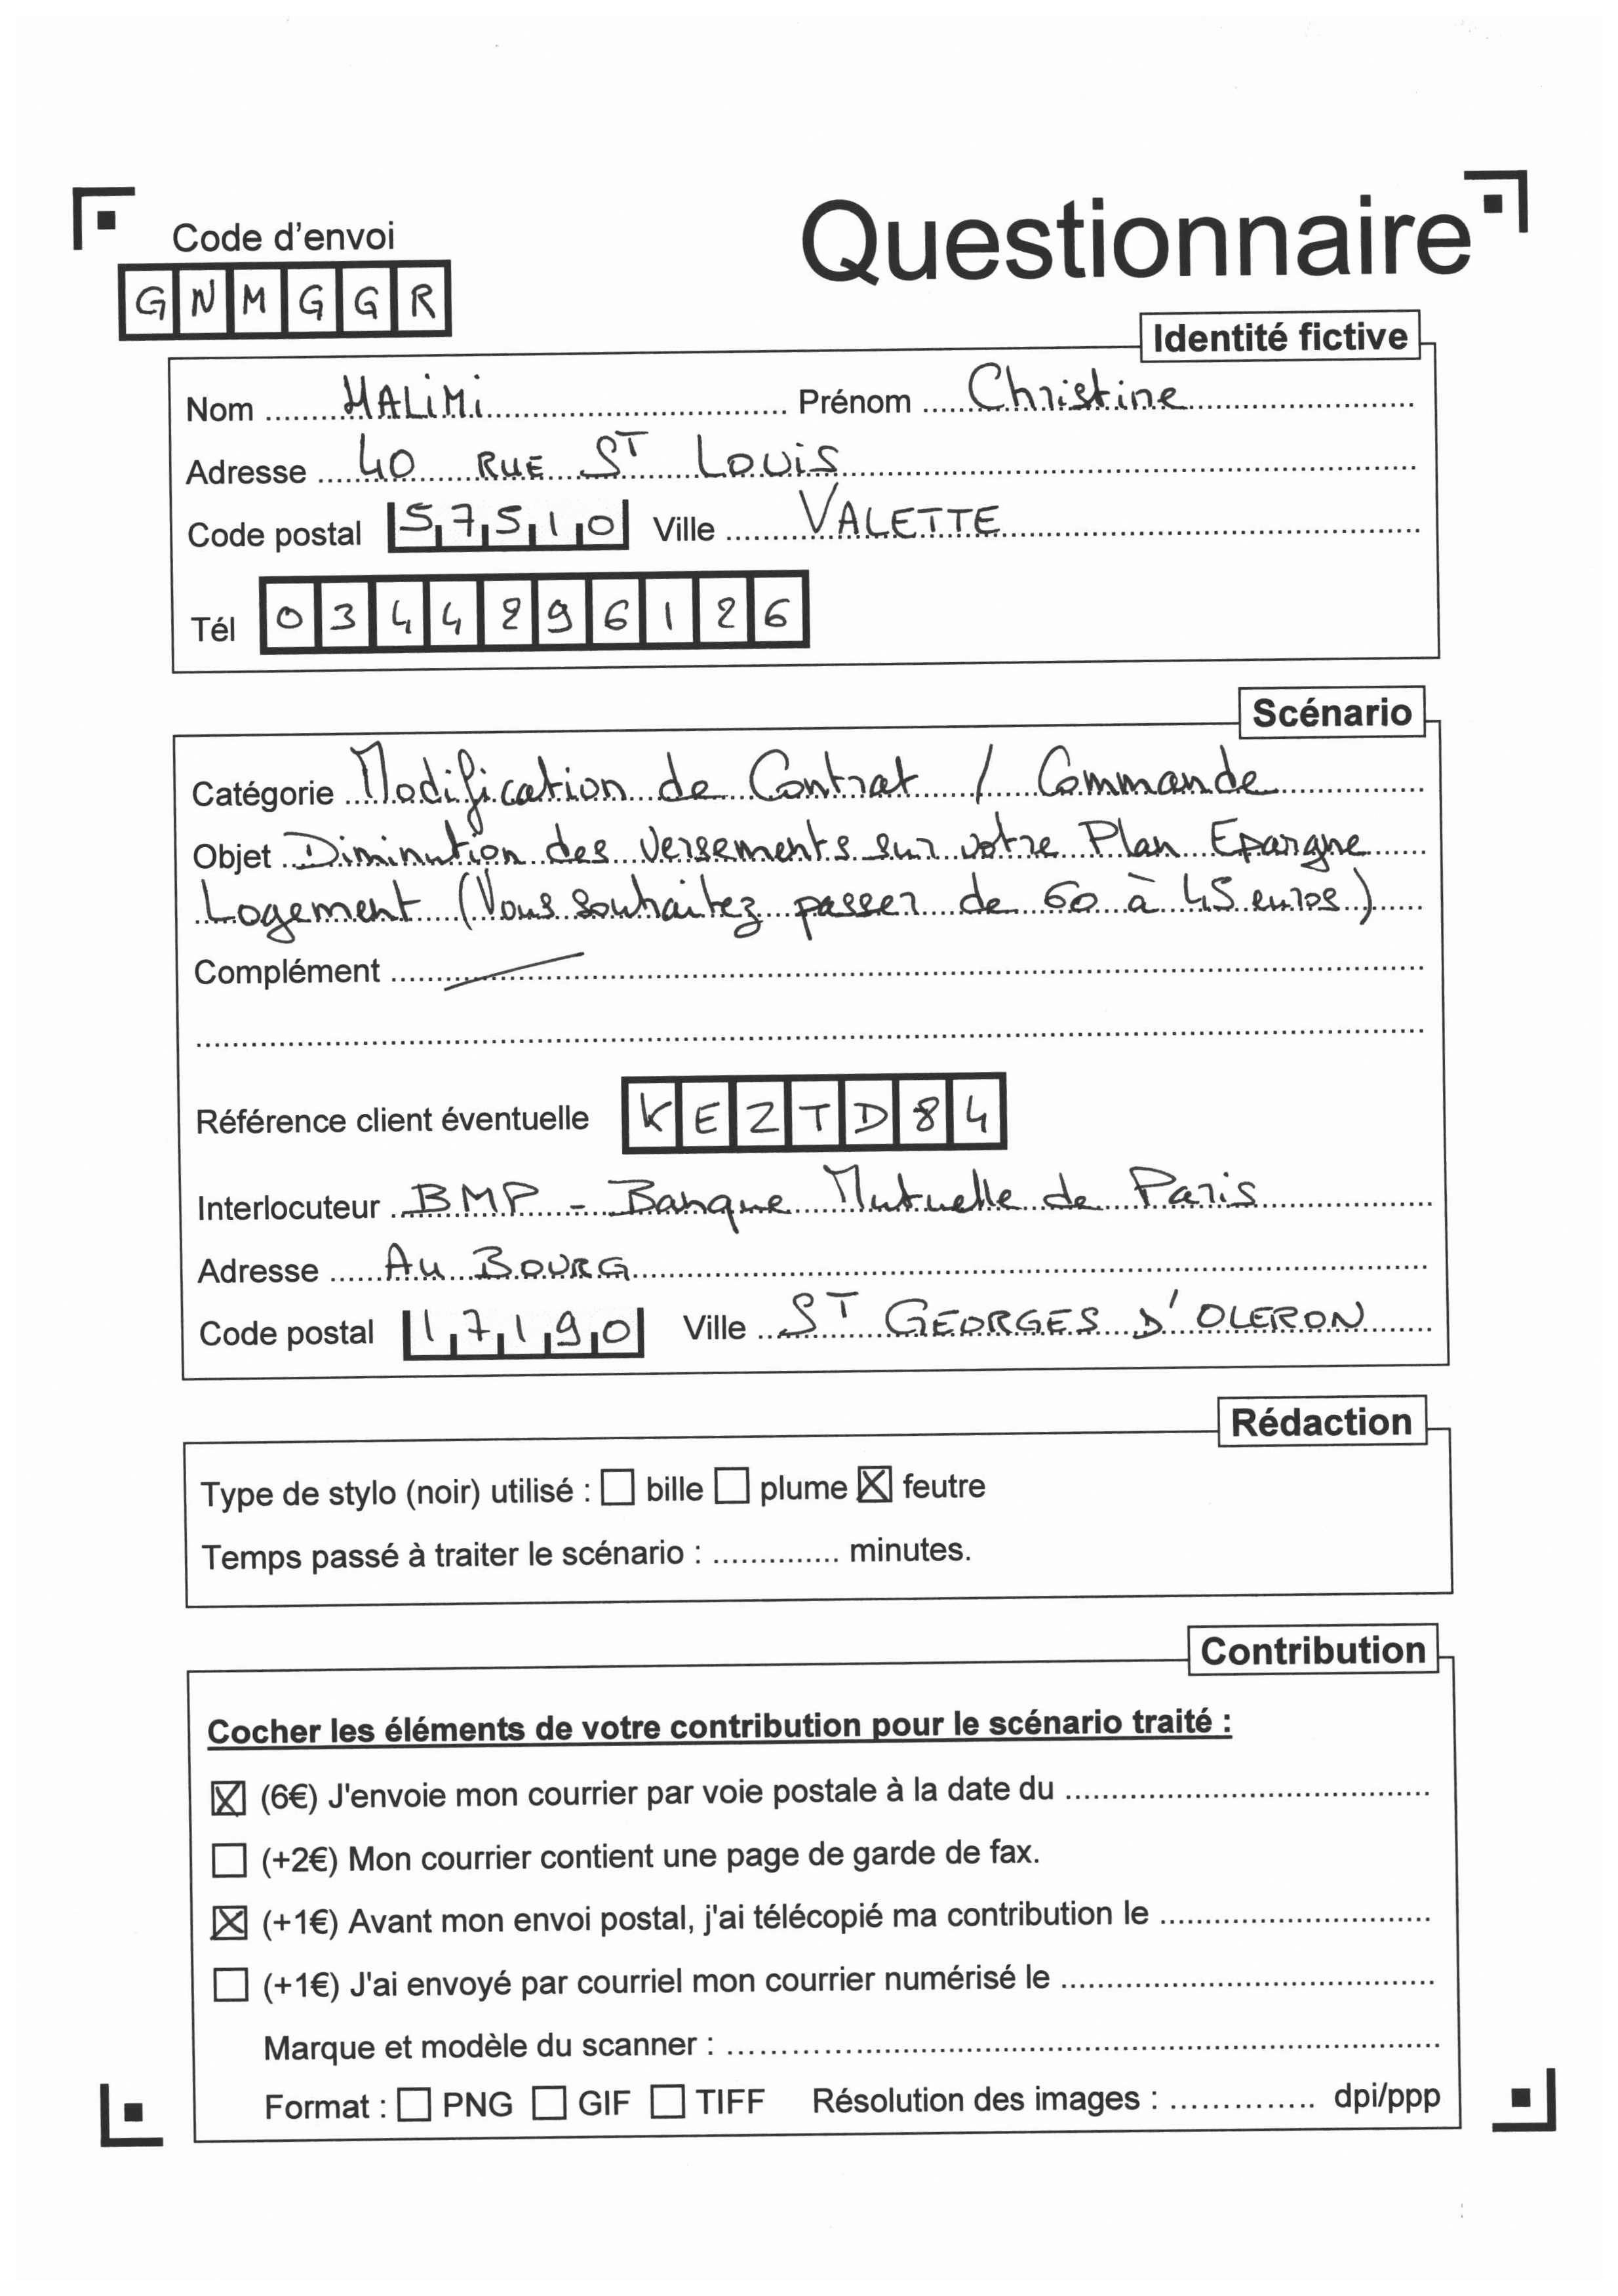 Code d'envoi
Questionnaire
GNMGGR
Identité fictive
Nom HALiMi Prénom Christine
Adresse 40 RUE ST Louis
Code postal 57510 Ville VALETTE
Tél 0344296126
Scénario
Catégorie Modification de Contrat / Commande
Objet Diminution des versements sur votre Plan Epargne
Logement (Vous souhaitez passer de 60 à 45 euros)
Complément
Référence client éventuelle KEZTD84
Interlocuteur BMP - Banque Mutuelle de Paris
Adresse Au BOURG
Code postal 17190 Ville ST GEORGES D'OLERON
Rédaction
Type de stylo (noir) utilisé : ☐ bille ☐ plume ☒ feutre
Temps passé à traiter le scénario : .............. minutes.
Contribution
Cocher les éléments de votre contribution pour le scénario traité :
☒ (6€) J'envoie mon courrier par voie postale à la date du
☐ (+2€) Mon courrier contient une page de garde de fax.
☒ (+1€) Avant mon envoi postal, j'ai télécopié ma contribution le
☐ (+1€) J'ai envoyé par courriel mon courrier numérisé le
Marque et modèle du scanner :
Format : ☐ PNG ☐ GIF ☐ TIFF Résolution des images : .............. dpi/ppp